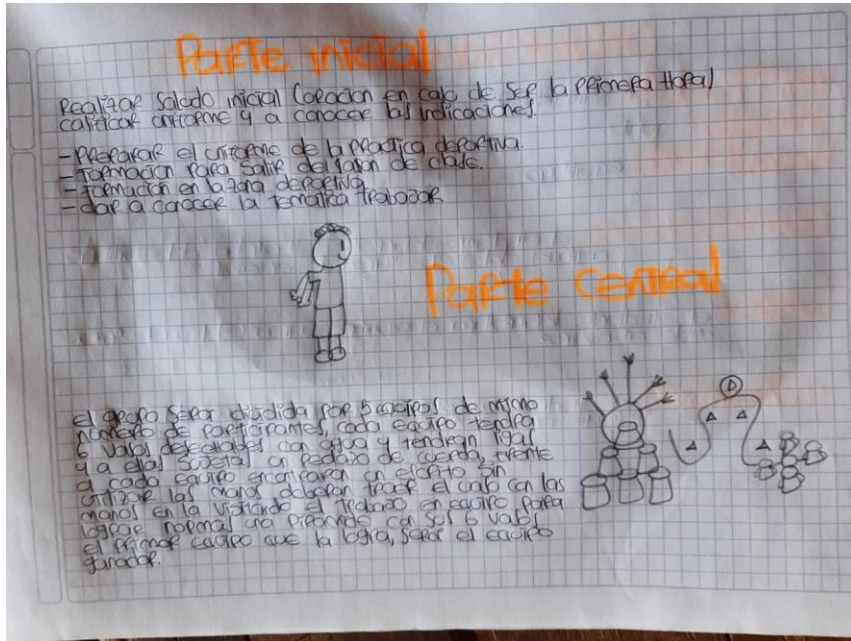 Parte inicial
Realizar Salado inicial (oracion en caso de ser la primera Hora)
calificar uniforme y a conocer las indicaciones.
- Preparar el uniforme de la practica deportiva.
- Formacion para Salir del salon de clase.
- Formacion en la zona deportiva
- dar a conocer la tematica trabajar.
Parte central
el grupo Serar dividida por 5 equipos de mismo
numero de participantes, cada equipo tendra
6 vasos desechables con agua y tendran ligas
y a ellas Sujetal un pedazo de cuerda, frente
a cada equipo un escrito Sin
utilizar las manos deberan traer el vaso con las
manos en la el trabajo en equipo para
lograr normal una piramide con sus 6 vasos
el primer equipo que la logra, Serar el equipo
ganador.
D